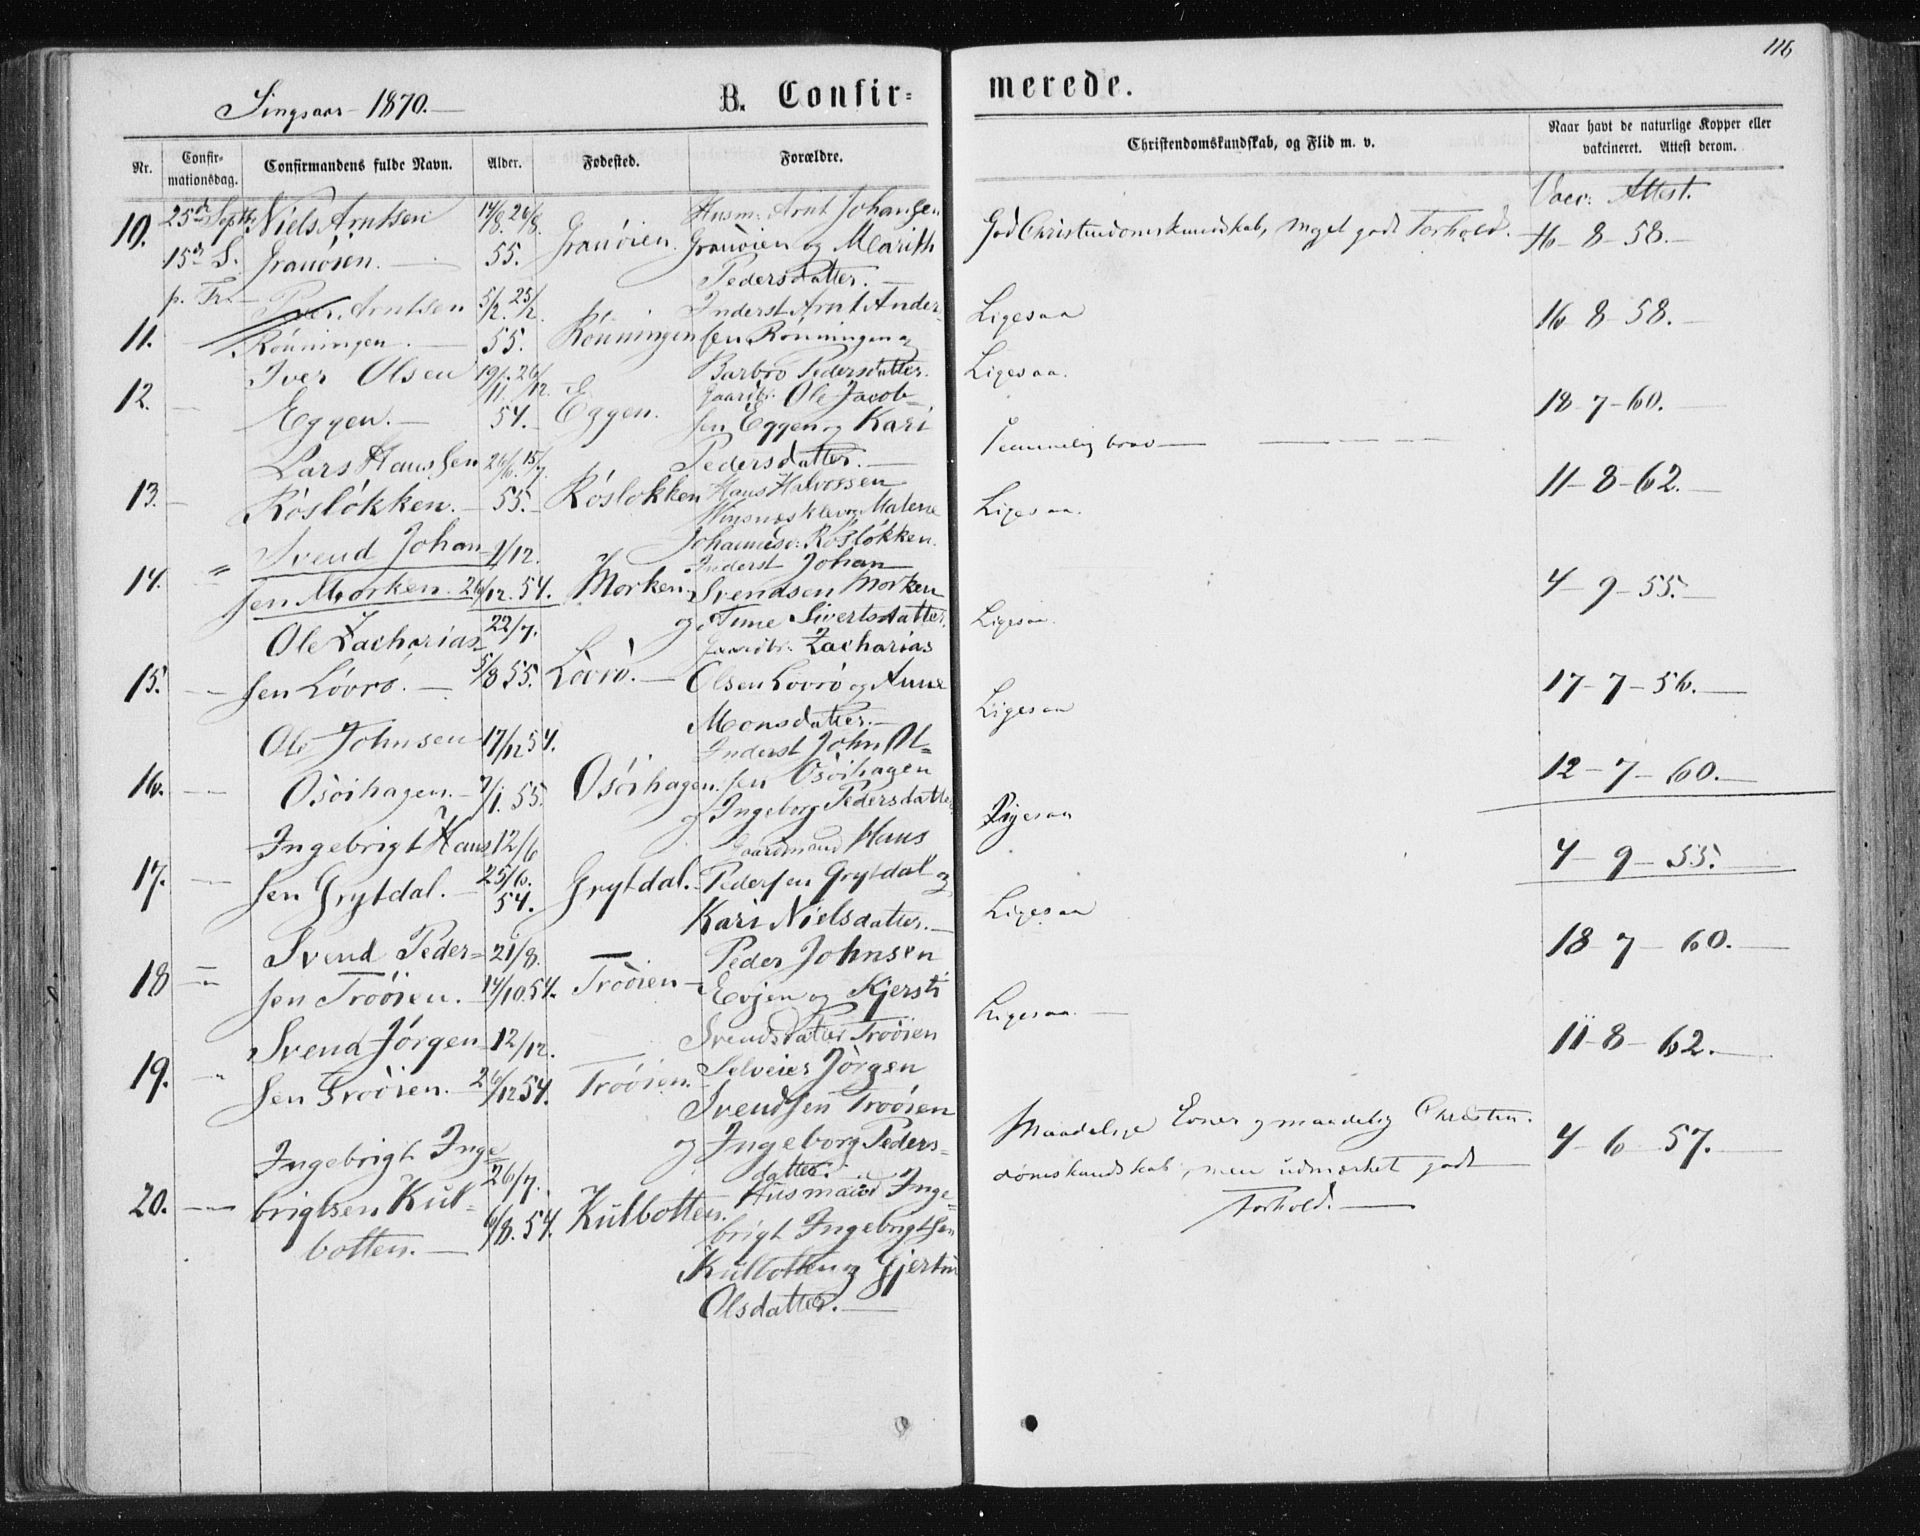 116
Singsaas 1870.
B. Confir=
merede.
Nr.
Confir-
mationsdag.
Confirmandens fulde Navn.
Alder.
Fødested.
Forældre.
Christendomskundskab, og Flid m. v.
Naar havt de naturlige Kopper eller
vakcineret. Attest derom.
Vacc. Attest.
10.
25de Septb.
15de S.
p. Tr.
Niels Arntsen
Granöien.
14/8. 26/8.
55.
Granöien.
Husm. Arnt Johansen
Granöien og Marith
Pedersdatter.
God Christendomskundskab, meget godt Forhold.
16-8-58.
11.
Peder Arntsen
Rönningen.
5/2. 25/2.
55.
Rönningen
Inderst Arnt Ander-
sen Rönningen og
Barbro Pedersdatter.
Ligesaa
16-8-58.
12.
Iver Olsen
Eggen.
19/11. 26/12.
54.
Eggen.
Gaardbr. Ole Jacob-
sen Eggen og Kari
Pedersdatter.
Ligesaa.
18-7-60.
13.
Lars Hanssen
Röslökken.
26/6. 15/7.
55.
Röslokken
Hans Halvorsen
Malene
Johannesd. Röslökken.
Temmelig brav
11-8-62.
14.
Svend Johan
sen Morken.
1/12.
26/12. 54.
Morken.
Inderst Johan
Svendsen Morken
og Sivertsdatter.
Ligesaa.
4-9-55.
15.
Ole Zacharias
sen Lövrö.
22/7.
5/8 55.
Lövrö.
Gaardbr. Zacharias
Olsen Lovrö og Anne
Monsdatter.
Ligesaa.
17-7-56.
16.
Ole Johnsen
Osöihagen.
17/12 54.
7/1. 55.
Osöihagen.
Inderst John Ol=
sen Osöihagen
og Ingeborg Pedersdatter
Ligesaa
12-7-60.
17.
Ingebrigt Hans
sen Grytdal.
12/6
25/6.
54.
Grytdal.
Gaardmand Hans
Pedersen Grytdal og
Kari Nielsdatter.
Ligesaa
4-9-55.
18
Svend Peder=
sen Trööien.
21/8.
14/10 54.
Tröoien
Peder Johnsen
Evjen og Kjersti
Svendsdatter Trööien
Ligesaa
18-7-60.
19.
Svend Jörgen
sen Tröoien.
12/12.
26/12 54.
Tröoien.
Selveier Jörgen
Svendsen Tröoien
og Ingeborg Peders-
datter.
Ligesaa.
11-8-62.
20.
Ingebrigt Inge
brigtsen Kul=
botten.
26/7.
6/8. 54.
Kulbotten.
Husmand Inge=
brigt Ingebrigtsen
Kulbotten og
Olsdatter.
Maadelige Evner og maadelig Christen-
domskundskab, men udmærket godt
Forhold.
4-6-57.